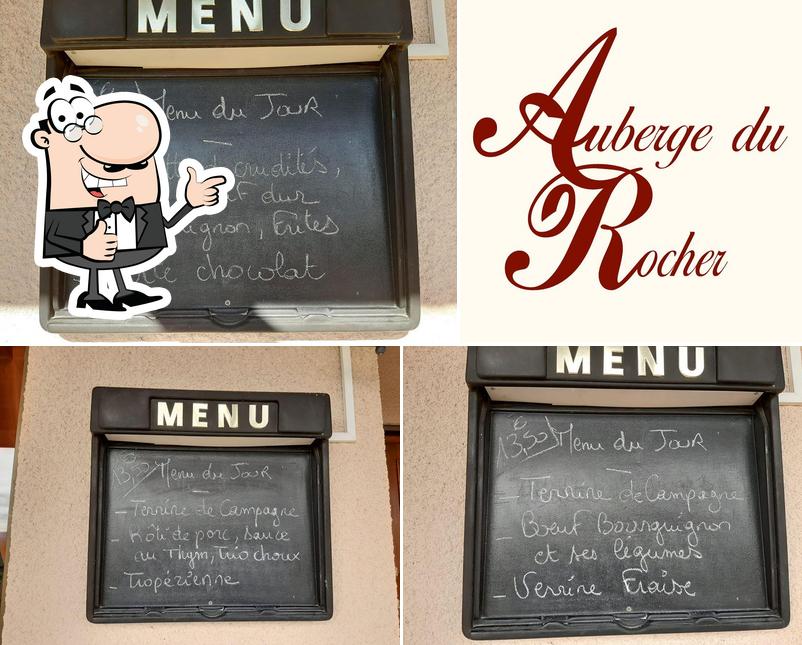 MENU
Menu du Jour
crudités,
dur
Frites
chocolat
Auberge du
Rocher
MENU
13,50 Menu du Jour
- Terrine de Campagne
- Rôti de porc, sauce
au Thym, Trio choux
- Tropézienne
MENU
13,50 € Menu du Jour
- Terrine de Campagne
- Boeuf Bourguignon
et ses légumes
- Verrine Fraise